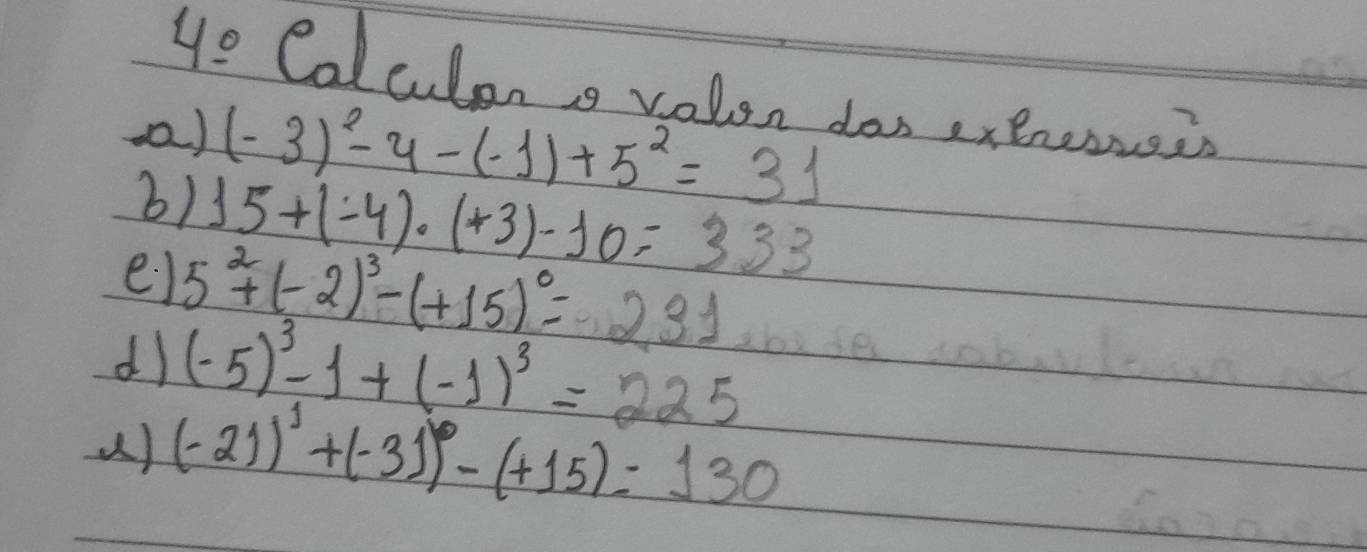 4º Calcular o valor das expressões
a) (-3)² - 4 - (-1) + 5² = 31
b) 15 + (-4) . (+3) - 10 = 333
c) 5² + (-2)³ - (+15)⁰ = 231
d) (-5)³ - 1 + (-1)³ = 225
e) (-21)¹ + (-31)⁰ - (+15) = 130